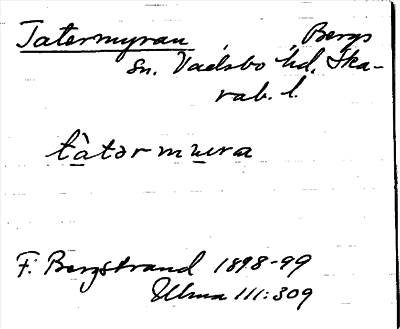 Tatermyran, Bergs
sn. Vadsbo hd. Ska-
rab. l.
tàtər mura
F. Bergstrand 1898-99
Ulma 111:309